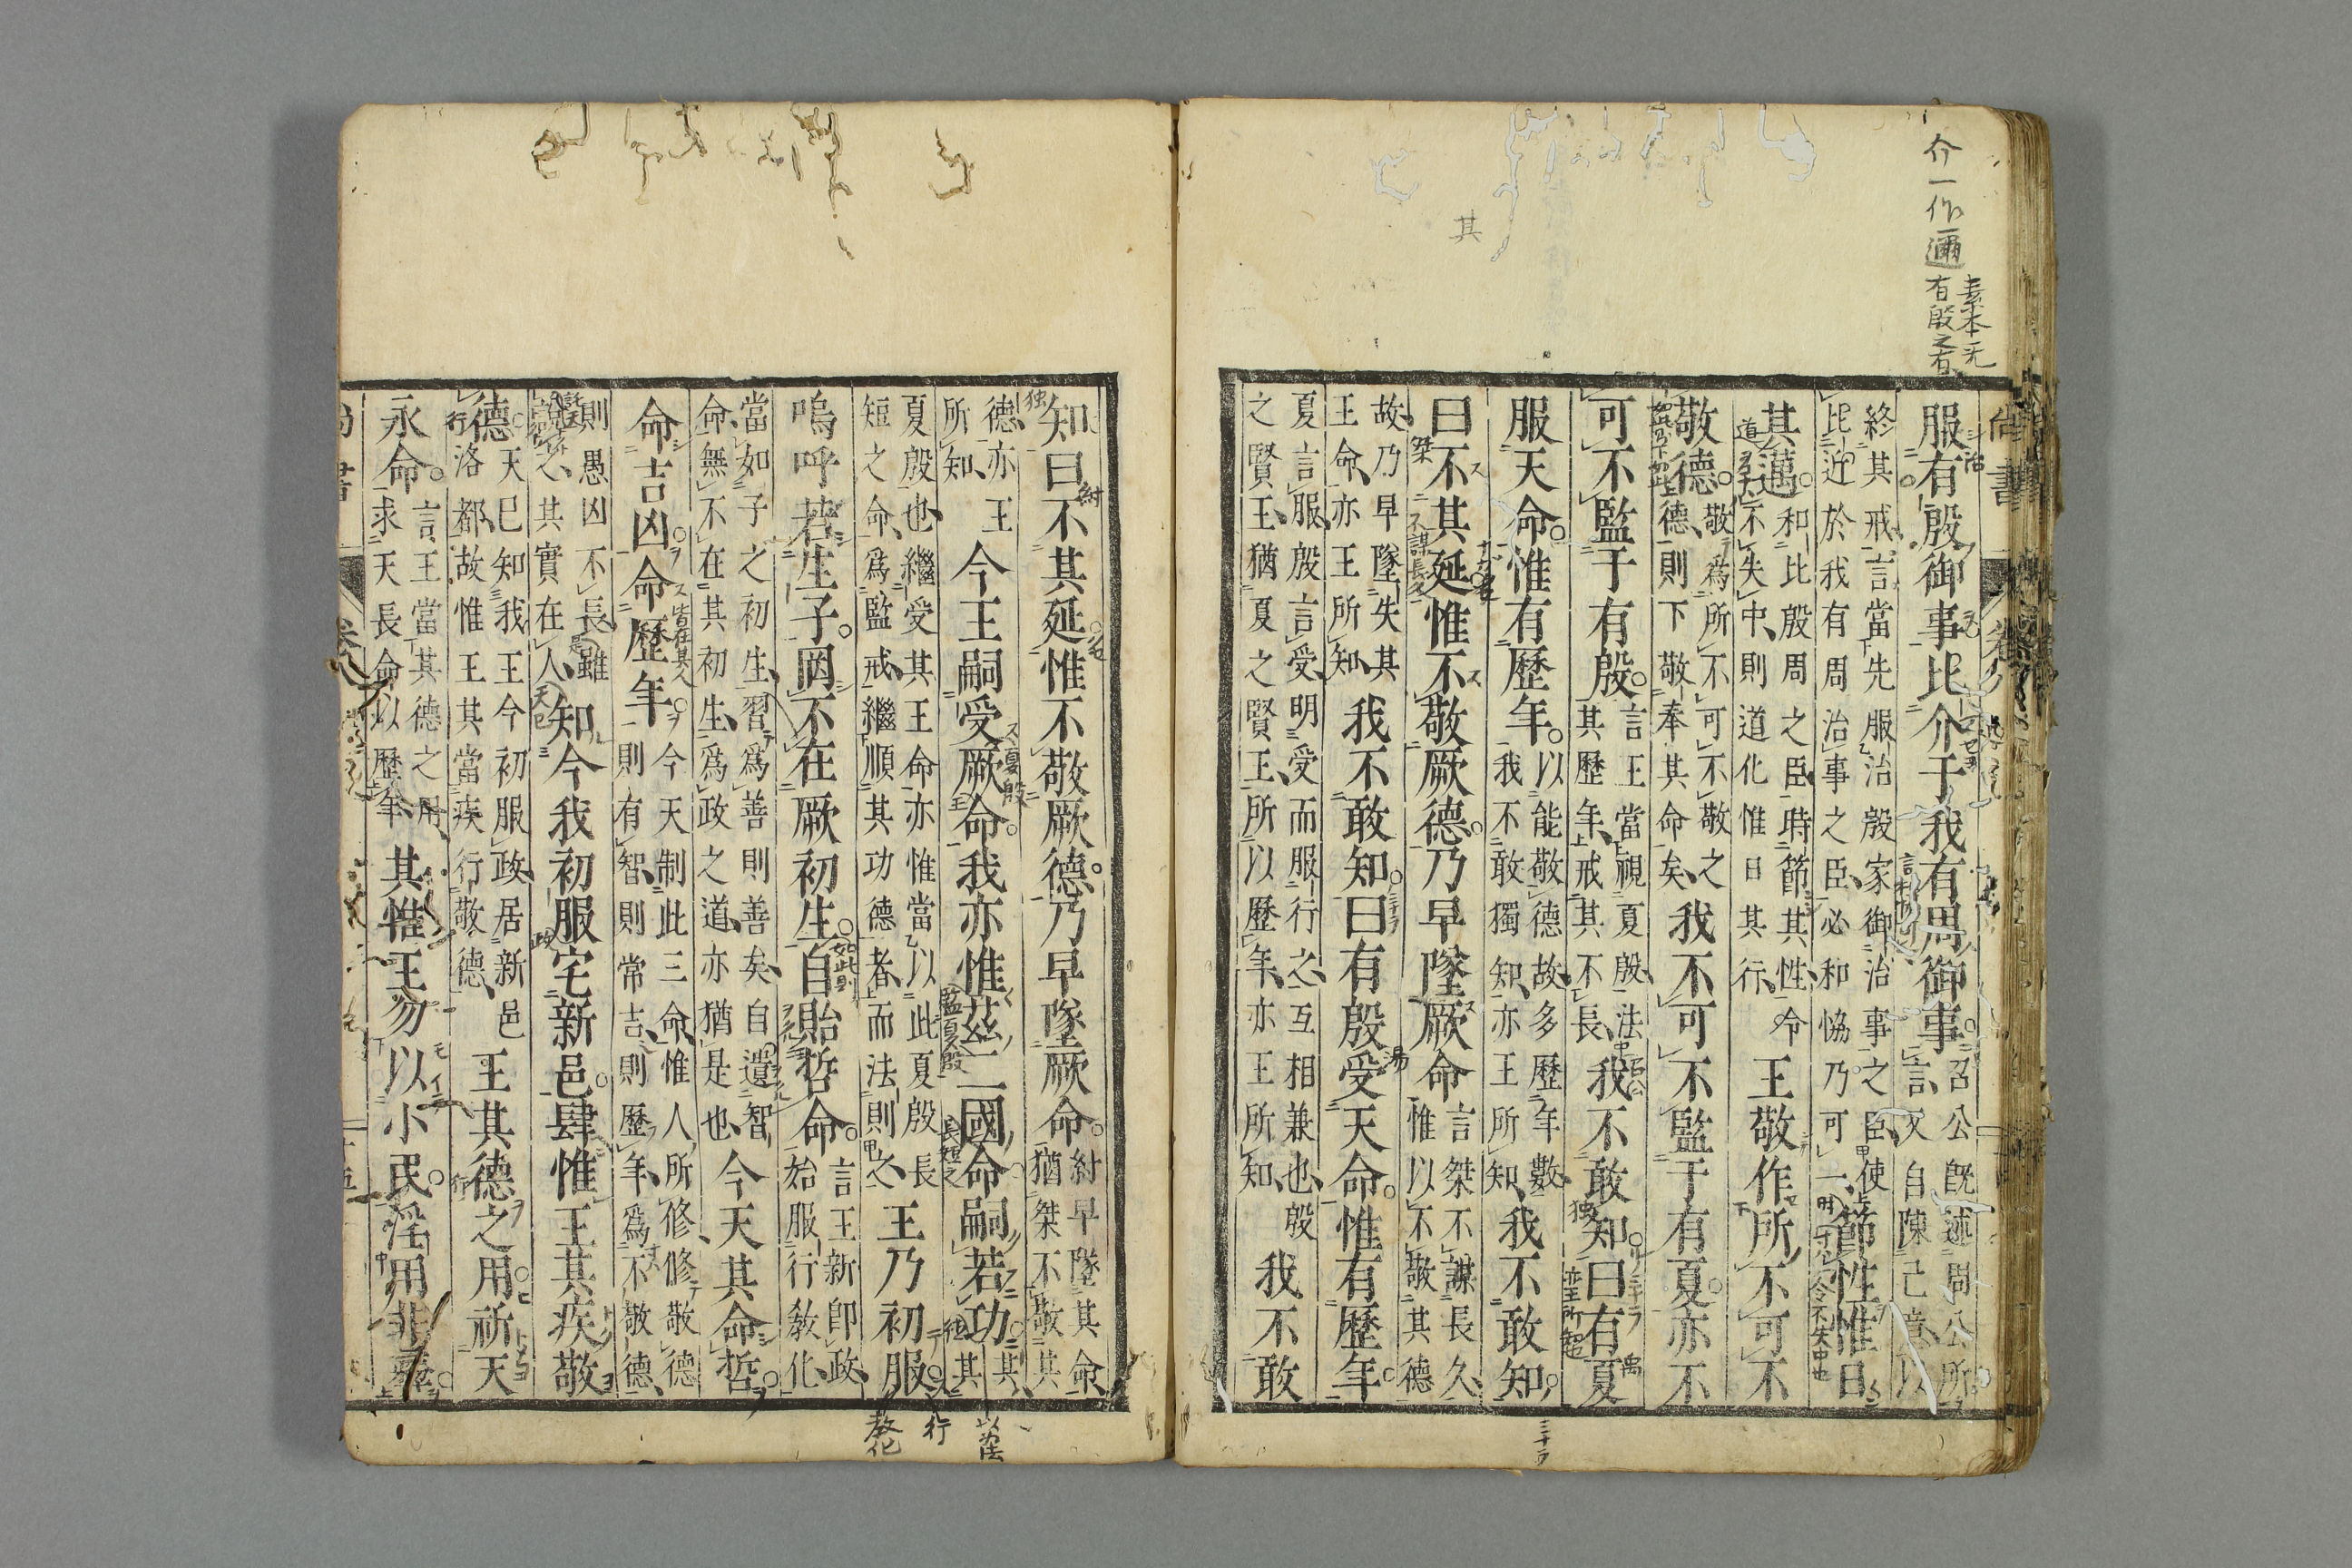 介一作邇
素本无
有殷之右
其
服有殷御事比介于我有周御事召公既述周公所
言又自陳己意以
終其戒言當先服治殷家御治事之臣使
比近於我有周治事之臣必和恊乃可一節性惟日
其邁和比殷周之臣時節其性令
不失中則道化惟日其行王敬作所不可不
敬德敬爲所不可不敬之
德則下敬奉其命矣我不可不監于有夏亦不
可不監于有殷言王當視夏殷法
其歷年戒其不長我不敢知曰有夏
服天命惟有歷年以能敬德故多歷年數
我不敢獨知亦王所知我不敢知
曰不其延惟不敬厥德乃早墜厥命言桀不謀長久
惟以不敬其德
故乃早墜失其
王命亦王所知我不敢知曰有殷受天命惟有歷年
夏言服殷言受明受而服行之互相兼也殷
之賢王猶夏之賢王所以歷年亦王所知我不敢
知曰不其延惟不敬厥德乃早墜厥命紂早墜其命
猶桀不敬其
德亦王
所知今王嗣受厥命我亦惟茲二國命嗣若功其
其
夏殷也繼受其王命亦惟當以此夏殷長
短之命爲監戒繼順其功德者而法則之王乃初服
嗚呼若生子罔不在厥初生自貽哲命言王新卽政
始服行敎化
當如子之初生習爲善則善矣自遺智
命無不在其初生爲政之道亦猶是也今天其命哲
命吉凶命歷年今天制此三命惟人所修修敬德
則有智則常吉則歷年爲不敬德
則愚凶不長雖
說之其實在人知今我初服宅新邑肆惟王其疾敬
德天已知我王今初服政居新邑
洛都故惟王其當疾行敬德王其德之用祈天
永命言王當其德之用
求天長命以歷年其惟王勿以小民淫用非彝